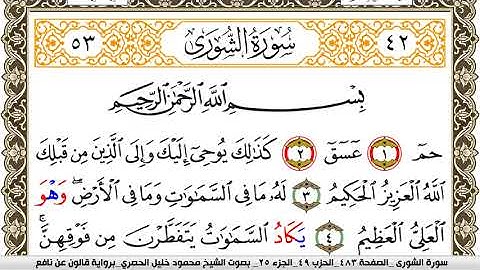 ٥٣ سُورَةُ الشُّورَى ٤٢
بِسْمِ اللَّهِ الرَّحْمَٰنِ الرَّحِيمِ
حمٓ ١ عٓسٓقٓ ٢ كَذَٰلِكَ يُوحِىٓ إِلَيْكَ وَإِلَى الَّذِينَ مِن قَبْلِكَ
اللَّهُ الْعَزِيزُ الْحَكِيمُ ٣ لَهُۥ مَا فِى السَّمَٰوَٰتِ وَمَا فِى الْأَرْضِ وَهْوَ
الْعَلِىُّ الْعَظِيمُ ٤ يَكَادُ السَّمَٰوَٰتُ يَتَفَطَّرْنَ مِن فَوْقِهِنَّ
سورة الشورى _الصفحة ٤٨٣_ الحزب ٤٩_ الجزء ٢٥_ بصوت الشيخ محمود خليل الحصري_ برواية قالون عن نافع